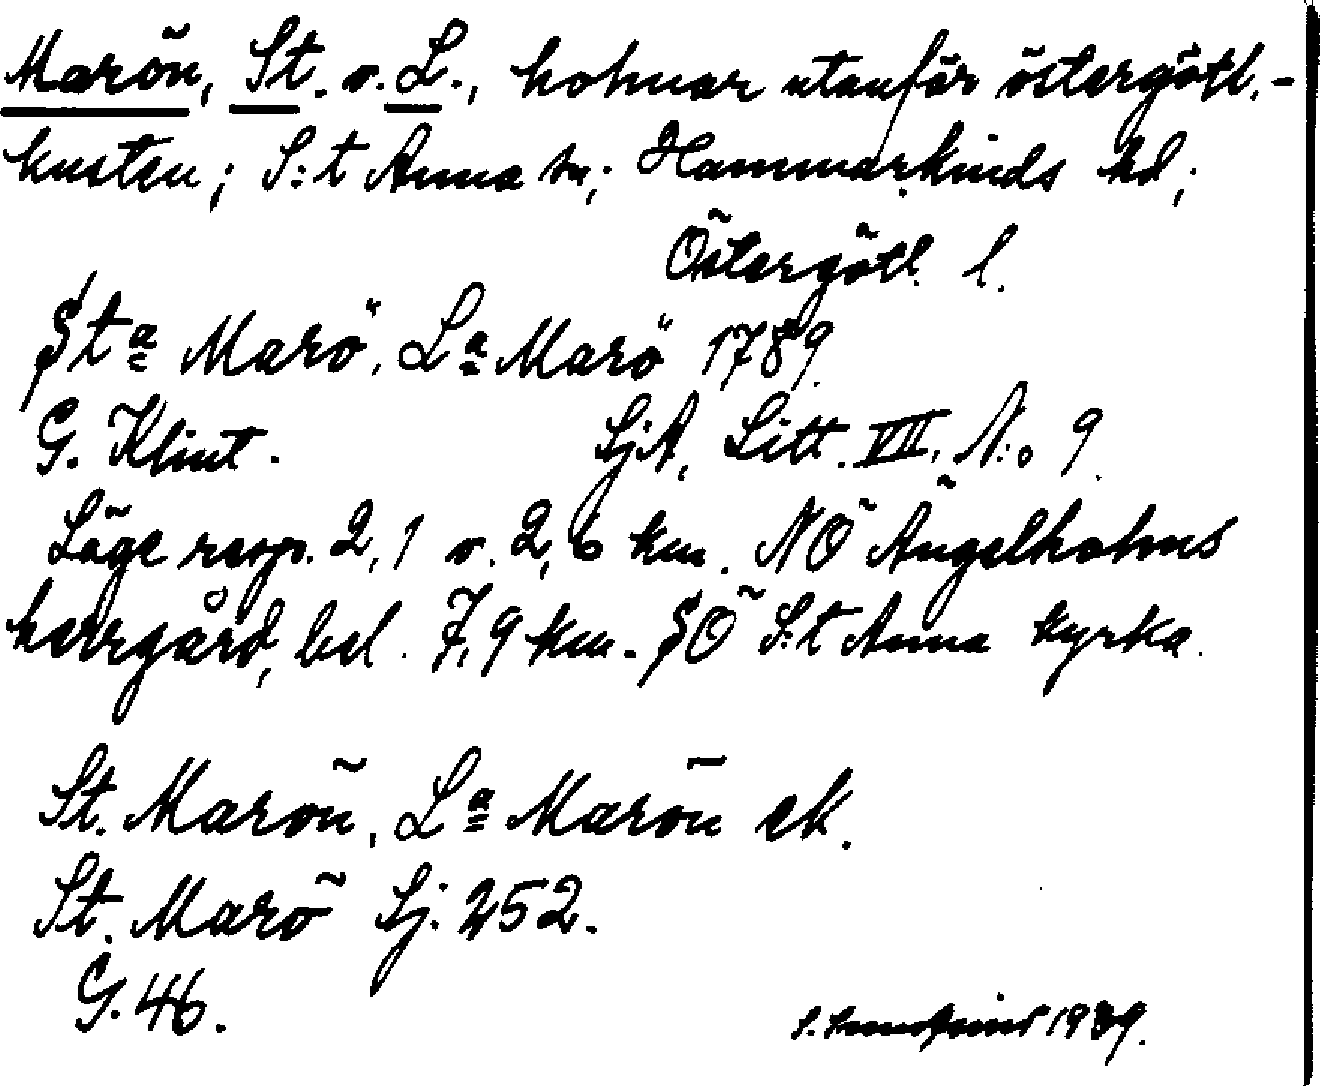 Marön, St. o. L., holmar utanför östergötl.-
kusten; S:t Anna sn; Hammarkinds hd;
Östergötl. l.
St<u>a</u> Marö, L<u>a</u> Marö 1789.
G. Klint. SjA, Litt. VII, N:o 9.
Läge resp. 2,1 o. 2,6 km. NÖ Ängelholms
herrgård, bel. 7,9 km. SÖ S:t Anna kyrka.
St. Marön, L<u>a</u> Marön ek.
St. Marö Sj. 252.
G. 46.
1939.